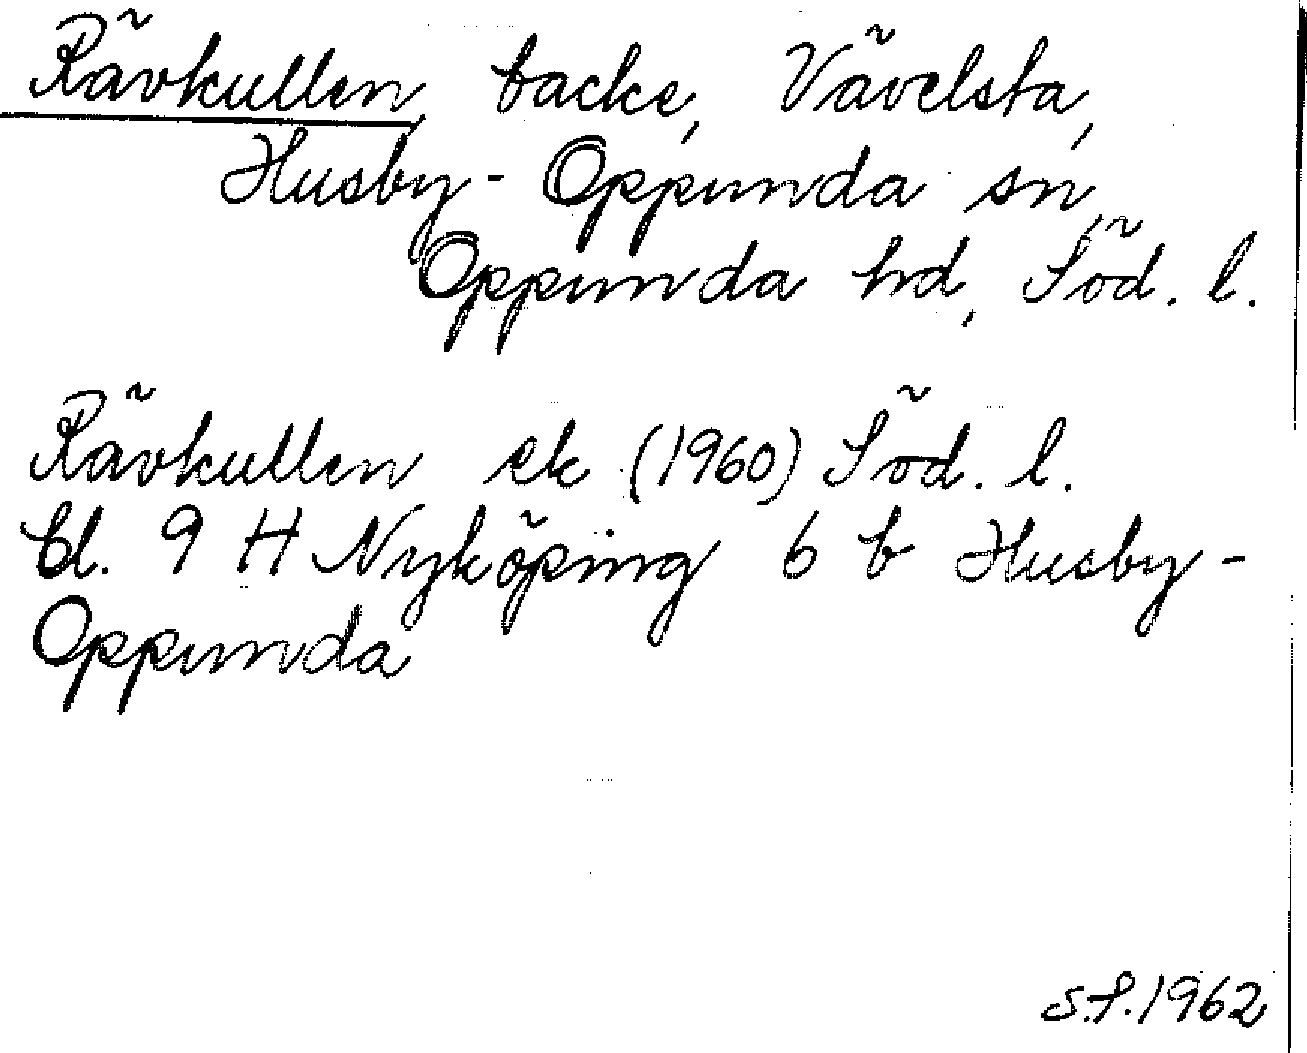 Rävkullen, backe, Vävelsta,
Husby-Oppunda sn,
Oppunda hd, Söd. l.
Rävkullen ek (1960) Söd. l.
bl. 9 H Nyköping 6 b Husby-
Oppunda
S.S. 1962